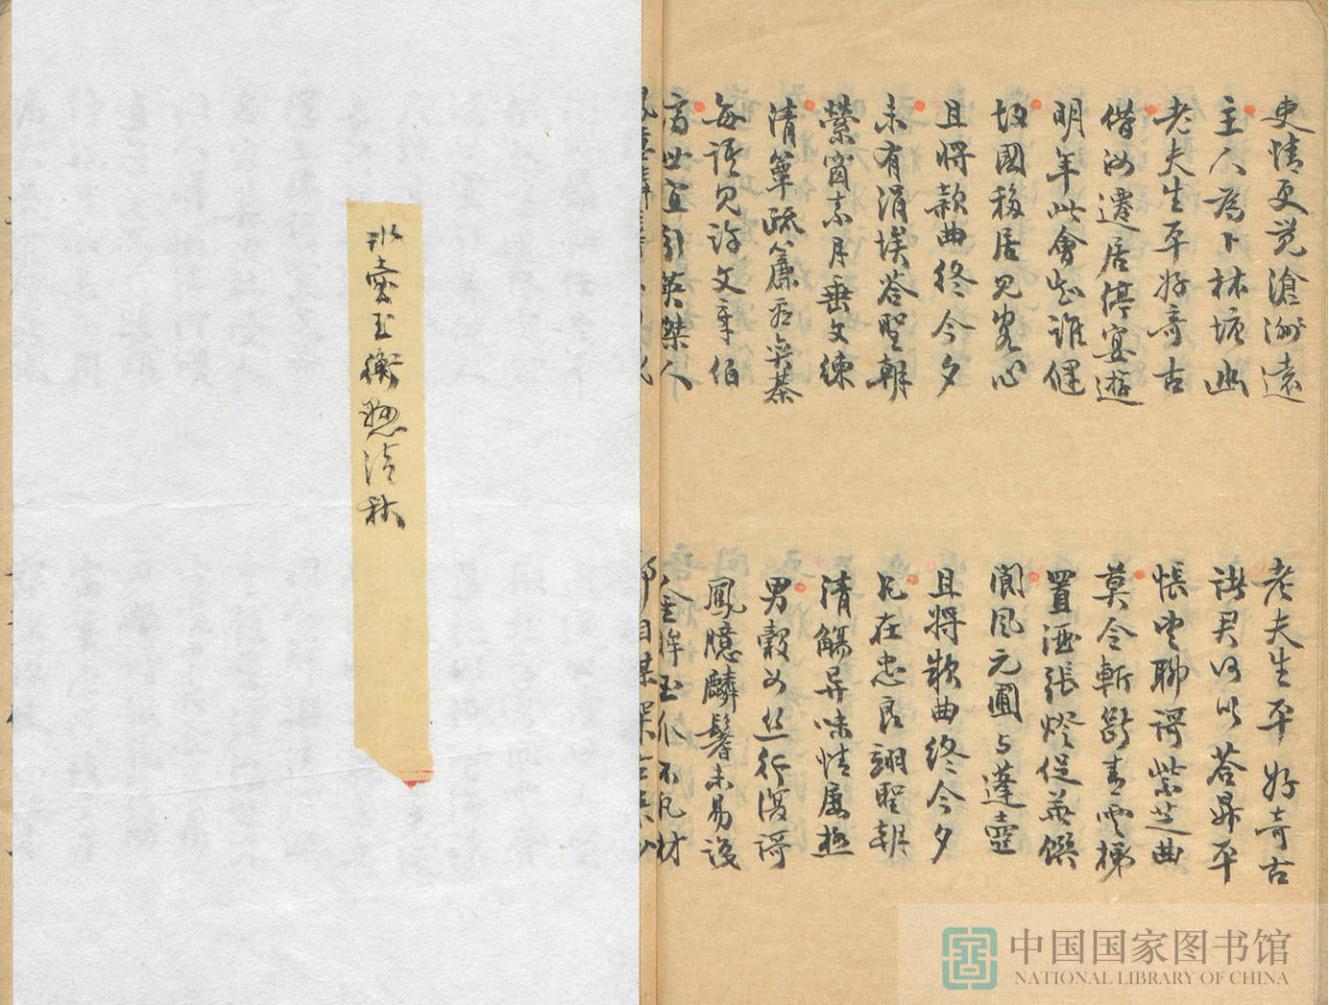 吏情更觉滄洲遠
主人為卜林塘幽
老夫生平好奇古
借汝遷居停宴遊
明年此會知誰健
故國移居見客心
且將款曲終今夕
未有涓埃答聖朝
縈窗素月垂文練
清簟疏簾看奕棊
每語見許文章伯
濟世宜引英桀人
老夫生平好奇古
諸君何以答昇平
悵望聊謌紫芝曲
莫令斬斷青雲梯
置酒張燈促華饌
閬風元圃与蓬壺
且將款曲終今夕
凡在忠良翊聖朝
清觴异味情屢極
男穀女丝行復謌
鳳臆麟鬐未易識
金眸玉爪不凡材
冰壺玉衡懸清秋
中国国家图书馆
NATIONAL LIBRARY OF CHINA